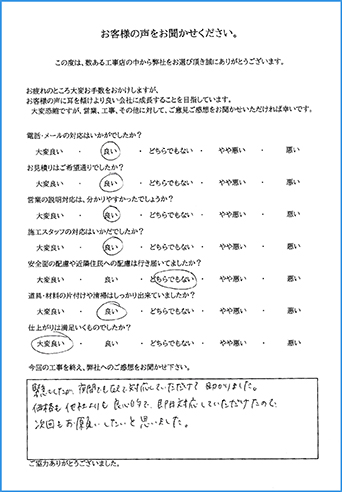 お客様の声をお聞かせください。
この度は、数ある工事店の中から弊社をお選び頂き誠にありがとうございます。
お疲れのところ大変お手数をおかけしますが、
お客様の声に耳を傾けより良い会社に成長することを目指しています。
大変恐縮ですが、営業、工事、その他に対して、ご意見ご感想をお聞かせいただければ幸いです。
電話・メールの対応はいかがでしたか?
大変良い ・ 良い ・ どちらでもない ・ やや悪い ・ 悪い
お見積りはご希望通りでしたか?
大変良い ・ 良い ・ どちらでもない ・ やや悪い ・ 悪い
営業の説明対応は、分かりやすかったでしょうか?
大変良い ・ 良い ・ どちらでもない ・ やや悪い ・ 悪い
施工スタッフの対応はいかだでしたか?
大変良い ・ 良い ・ どちらでもない ・ やや悪い ・ 悪い
安全面の配慮や近隣住民への配慮は行き届いてましたか?
大変良い ・ 良い ・ どちらでもない ・ やや悪い ・ 悪い
道具・材料の片付けや清掃はしっかり出来ていましたか?
大変良い ・ 良い ・ どちらでもない ・ やや悪い ・ 悪い
仕上がりは満足いくものでしたか?
大変良い ・ 良い ・ どちらでもない ・ やや悪い ・ 悪い
今回の工事を終え、弊社へのご感想をお聞かせ下さい。
夜間にも対応していただけて助かりました。
価格も他社よりも良心的で、即日対応していただけたので、
次回もお願いしたいと思いました。
ご協力ありがとうございました。